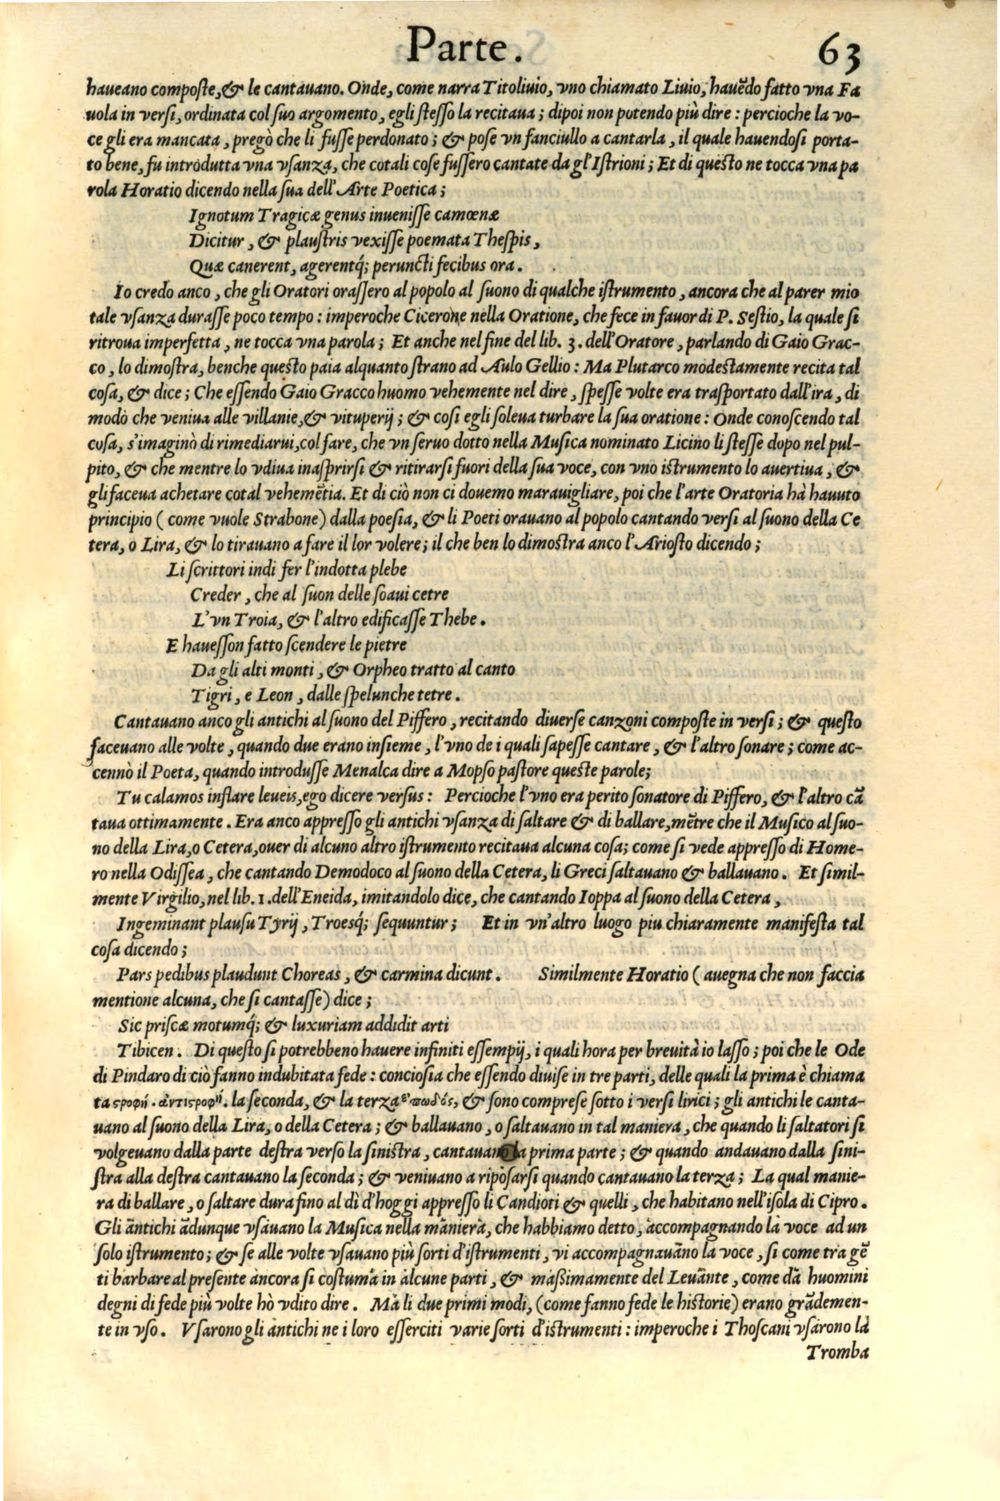 Parte. 63
haueano composte, & le cantauano. Onde, come narra Titoliuio, vno chiamato Liuio, hauẽdo fatto vna Fa
uola in versi, ordinata col suo argomento, egli stesso la recitaua; dipoi non potendo più dire: percioche la vo-
ce gli era mancata, pregò che li fusse perdonato; & pose vn fanciullo a cantarla, il quale hauendosi porta-
to bene, fu introdutta vna vsanza, che cotali cose fussero cantate da gl'Istrioni; Et di questo ne tocca vna pa
rola Horatio dicendo nella sua dell'Arte Poetica;
Ignotum Tragicæ genus inuenisse camœnæ
Dicitur, & plaustris vexisse poemata Thespis,
Quæ canerent, agerentq́; peruncti fecibus ora.
Io credo anco, che gli Oratori orassero al popolo al suono di qualche istrumento, ancora che al parer mio
tale vsanza durasse poco tempo: imperoche Cicerone nella Oratione, che fece in fauor di P. Sestio, la quale si
ritroua imperfetta, ne tocca vna parola; Et anche nel fine del lib. 3. dell'Oratore, parlando di Gaio Grac-
co, lo dimostra, benche questo paia alquanto strano ad Aulo Gellio: Ma Plutarco modestamente recita tal
cosa, & dice; Che essendo Gaio Gracco huomo vehemente nel dire, spesse volte era trasportato dall'ira, di
modo che veniua alle villanie, & vituperij; & cosi egli soleua turbare la sua oratione: Onde conoscendo tal
cosa, s'imaginò di rimediarui, col fare, che vn seruo dotto nella Musica nominato Licino li stesse dopo nel pul-
pito, & che mentre lo vdiua inasprirsi & ritirarsi fuori della sua voce, con vno istrumento lo auertiua, &
gli faceua achetare cotal vehemẽtia. Et di ciò non ci douemo marauigliare, poi che l'arte Oratoria hà hauuto
principio (come vuole Strabone) dalla poesia, & li Poeti orauano al popolo cantando versi al suono della Ce
tera, o Lira, & lo tirauano a fare il lor volere; il che ben lo dimostra anco l'Ariosto dicendo;
Li scrittori indi fer l'indotta plebe
Creder, che al suon delle soaui cetre
L'vn Troia, & l'altro edificasse Thebe.
E hauesson fatto scendere le pietre
Da gli alti monti, & Orpheo tratto al canto
Tigri, e Leon, dalle spelunche tetre.
Cantauano anco gli antichi al suono del Piffero, recitando diuerse canzoni composte in versi; & questo
faceuano alle volte, quando due erano insieme, l'vno de i quali sapesse cantare, & l'altro sonare; come ac-
cennò il Poeta, quando introdusse Menalca dire a Mopso pastore queste parole;
Tu calamos inflare leueis, ego dicere versus: Percioche l'vno era perito sonatore di Piffero, & l'altro cã
taua ottimamente. Era anco appresso gli antichi vsanza di saltare & di ballare, mẽtre che il Musico al suo-
no della Lira, o Cetera, ouer di alcuno altro istrumento recitaua alcuna cosa; come si vede appresso di Home-
ro nella Odissea, che cantando Demodoco al suono della Cetera, li Greci saltauano & ballauano. Et simil-
mente Virgilio, nel lib. 1. dell'Eneida, imitandolo dice, che cantando Ioppa al suono della Cetera,
Ingeminant plausu Tyrij, Troesq́; sequuntur; Et in vn'altro luogo piu chiaramente manifesta tal
cosa dicendo;
Pars pedibus plaudunt Choreas, & carmina dicunt. Similmente Horatio (auegna che non faccia
mentione alcuna, che si cantasse) dice;
Sic priscæ motumq́; & luxuriam addidit arti
Tibicen. Di questo si potrebbeno hauere infiniti essempij, i quali hora per breuità io lasso; poi che le Ode
di Pindaro di ciò fanno indubitata fede: conciosia che essendo diuise in tre parti, delle quali la prima è chiama
ta ςροφή. ἀντιςροφὴ. la seconda, & la terza ἐπωδός, & sono comprese sotto i versi lirici; gli antichi le canta-
uano al suono della Lira, o della Cetera; & ballauano, o saltauano in tal maniera, che quando li saltatori si
volgeuano dalla parte destra verso la sinistra, cantauano la prima parte; & quando andauano dalla sini-
stra alla destra cantauano la seconda; & veniuano a riposarsi quando cantauano la terza; La qual manie-
ra di ballare, o saltare dura fino al dì d'hoggi appresso li Candioti & quelli, che habitano nell'isola di Cipro.
Gli antichi adunque vsauano la Musica nella maniera, che habbiamo detto, accompagnando la voce ad un
solo istrumento; & se alle volte vsauano più sorti d'istrumenti, vi accompagnauano la voce, si come tra gẽ
ti barbare al presente ancora si costuma in alcune parti, & maßimamente del Leuante, come da huomini
degni di fede più volte hò vdito dire. Ma li due primi modi, (come fanno fede le historie) erano grãdemen-
te in vso. Vsarono gli antichi ne i loro esserciti varie sorti d'istrumenti: imperoche i Thoscani vsarono la
Tromba